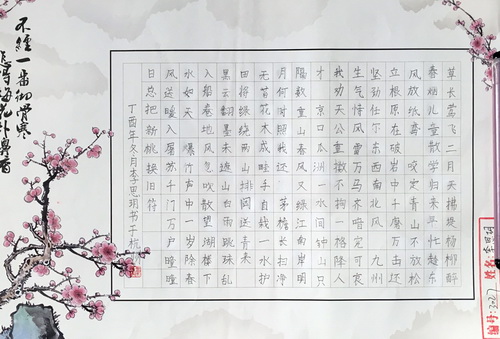 草长莺飞二月天拂堤杨柳醉
春烟儿童散学归来早忙趁东
风放纸鸢 咬定青山不放松
立根原在破岩中千磨万击还
坚劲任尔东西南北风 九州
生气恃风雷万马齐喑究可哀
我劝天公重擞不拘一格降人
才 京口瓜洲一水间钟山只
隔数重山春风又绿江南岸明
月何时照我还 茅檐长扫净
无苔花木成畦手自栽一水护
田将绿绕两山排闼送青来
黑云翻墨未遮山白雨跳珠乱
入船卷地风吹散望湖楼下
水如天 爆竹声中一岁除春
风送暖入屠苏千门万户曈曈
日总把新桃换旧符
丁酉年冬月李思玥书于杭
不经一番彻骨寒
怎得梅花扑鼻香
编号:3027 姓名:李思玥